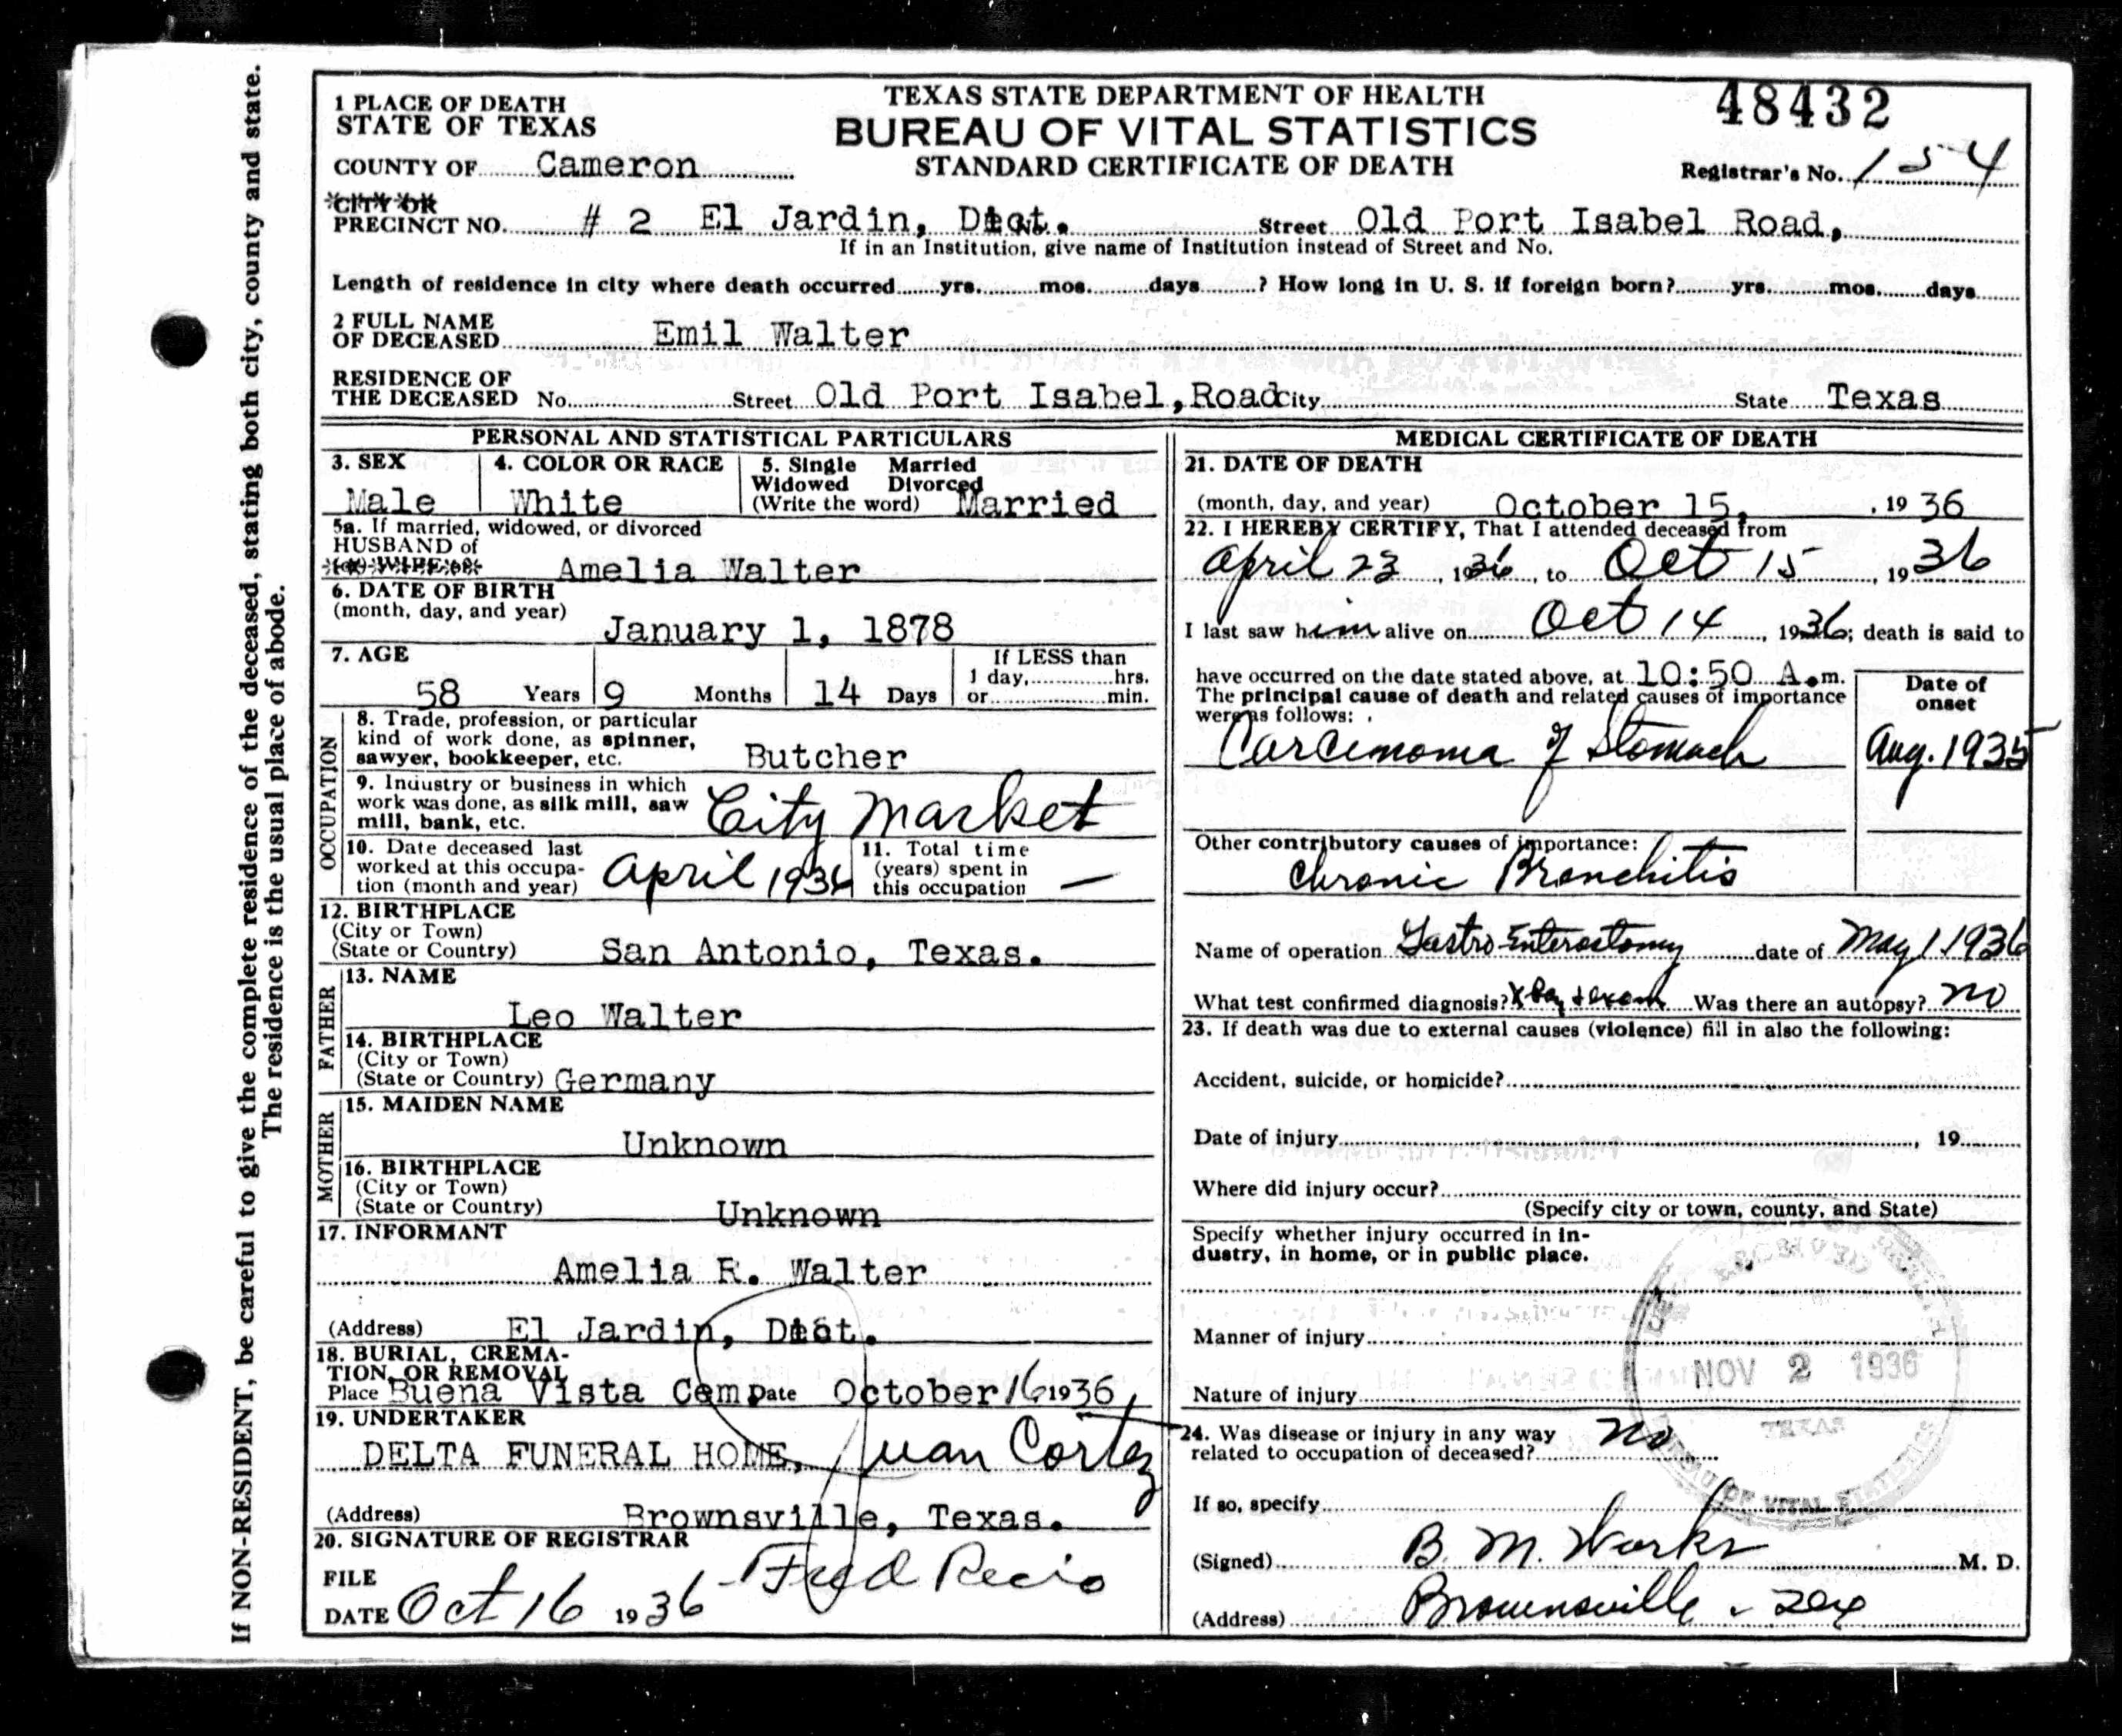 If NON-RESIDENT, be careful to give the complete residence of the deceased, stating both city, county and state.
The residence is the usual place of abode.
1 PLACE OF DEATH
STATE OF TEXAS
COUNTY OF Cameron
TEXAS STATE DEPARTMENT OF HEALTH
BUREAU OF VITAL STATISTICS
STANDARD CERTIFICATE OF DEATH
48432
Registrar's No. 154
CITY OR
PRECINCT NO. # 2 El Jardin, Dist. Street Old Port Isabel Road,
If in an Institution, give name of Institution instead of Street and No.
Length of residence in city where death occurred yrs. mos. days ? How long in U. S. if foreign born? yrs. mos. days
2 FULL NAME
OF DECEASED Emil Walter
RESIDENCE OF
THE DECEASED No. Street Old Port Isabel, Road City State Texas
PERSONAL AND STATISTICAL PARTICULARS
3. SEX
Male
4. COLOR OR RACE
White
5. Single Married
Widowed Divorced
(Write the word) Married
5a. If married, widowed, or divorced
HUSBAND of
(or) WIFE of Amelia Walter
6. DATE OF BIRTH
(month, day, and year) January 1, 1878
7. AGE
58 Years 9 Months 14 Days
If LESS than
1 day, hrs.
or min.
OCCUPATION
8. Trade, profession, or particular
kind of work done, as spinner,
sawyer, bookkeeper, etc. Butcher
9. Industry or business in which
work was done, as silk mill, saw
mill, bank, etc. City Market
10. Date deceased last
worked at this occupa-
tion (month and year) April 1936
11. Total time
(years) spent in
this occupation —
12. BIRTHPLACE
(City or Town)
(State or Country) San Antonio, Texas.
FATHER
13. NAME
Leo Walter
14. BIRTHPLACE
(City or Town)
(State or Country) Germany
MOTHER
15. MAIDEN NAME
Unknown
16. BIRTHPLACE
(City or Town)
(State or Country) Unknown
17. INFORMANT
Amelia R. Walter
(Address) El Jardin, Dist.
18. BURIAL, CREMA-
TION, OR REMOVAL
Place Buena Vista Cem Date October 16 1936
19. UNDERTAKER
DELTA FUNERAL HOME, Juan Cortez
(Address) Brownsville, Texas.
20. SIGNATURE OF REGISTRAR
FILE
DATE Oct 16 1936 - Fred Recio
MEDICAL CERTIFICATE OF DEATH
21. DATE OF DEATH
(month, day, and year) October 15, , 1936
22. I HEREBY CERTIFY, That I attended deceased from
April 23, 1936, to Oct 15, 1936
I last saw him alive on Oct 14, 1936; death is said to
have occurred on the date stated above, at 10:50 A.m.
The principal cause of death and related causes of importance
were as follows:
Carcinoma of Stomach
Date of
onset
Aug. 1935
Other contributory causes of importance:
Chronic Bronchitis
Name of operation Gastro-Enterostomy date of May 1 1936
What test confirmed diagnosis? X Ray & exam Was there an autopsy? no
23. If death was due to external causes (violence) fill in also the following:
Accident, suicide, or homicide?
Date of injury , 19
Where did injury occur?
(Specify city or town, county, and State)
Specify whether injury occurred in in-
dustry, in home, or in public place.
Manner of injury
Nature of injury
24. Was disease or injury in any way
related to occupation of deceased? no
If so, specify
(Signed) B. M. Works M. D.
(Address) Brownsville - Tex
RECEIVED
NOV 2 1936
TEXAS
BUREAU OF VITAL STATISTICS